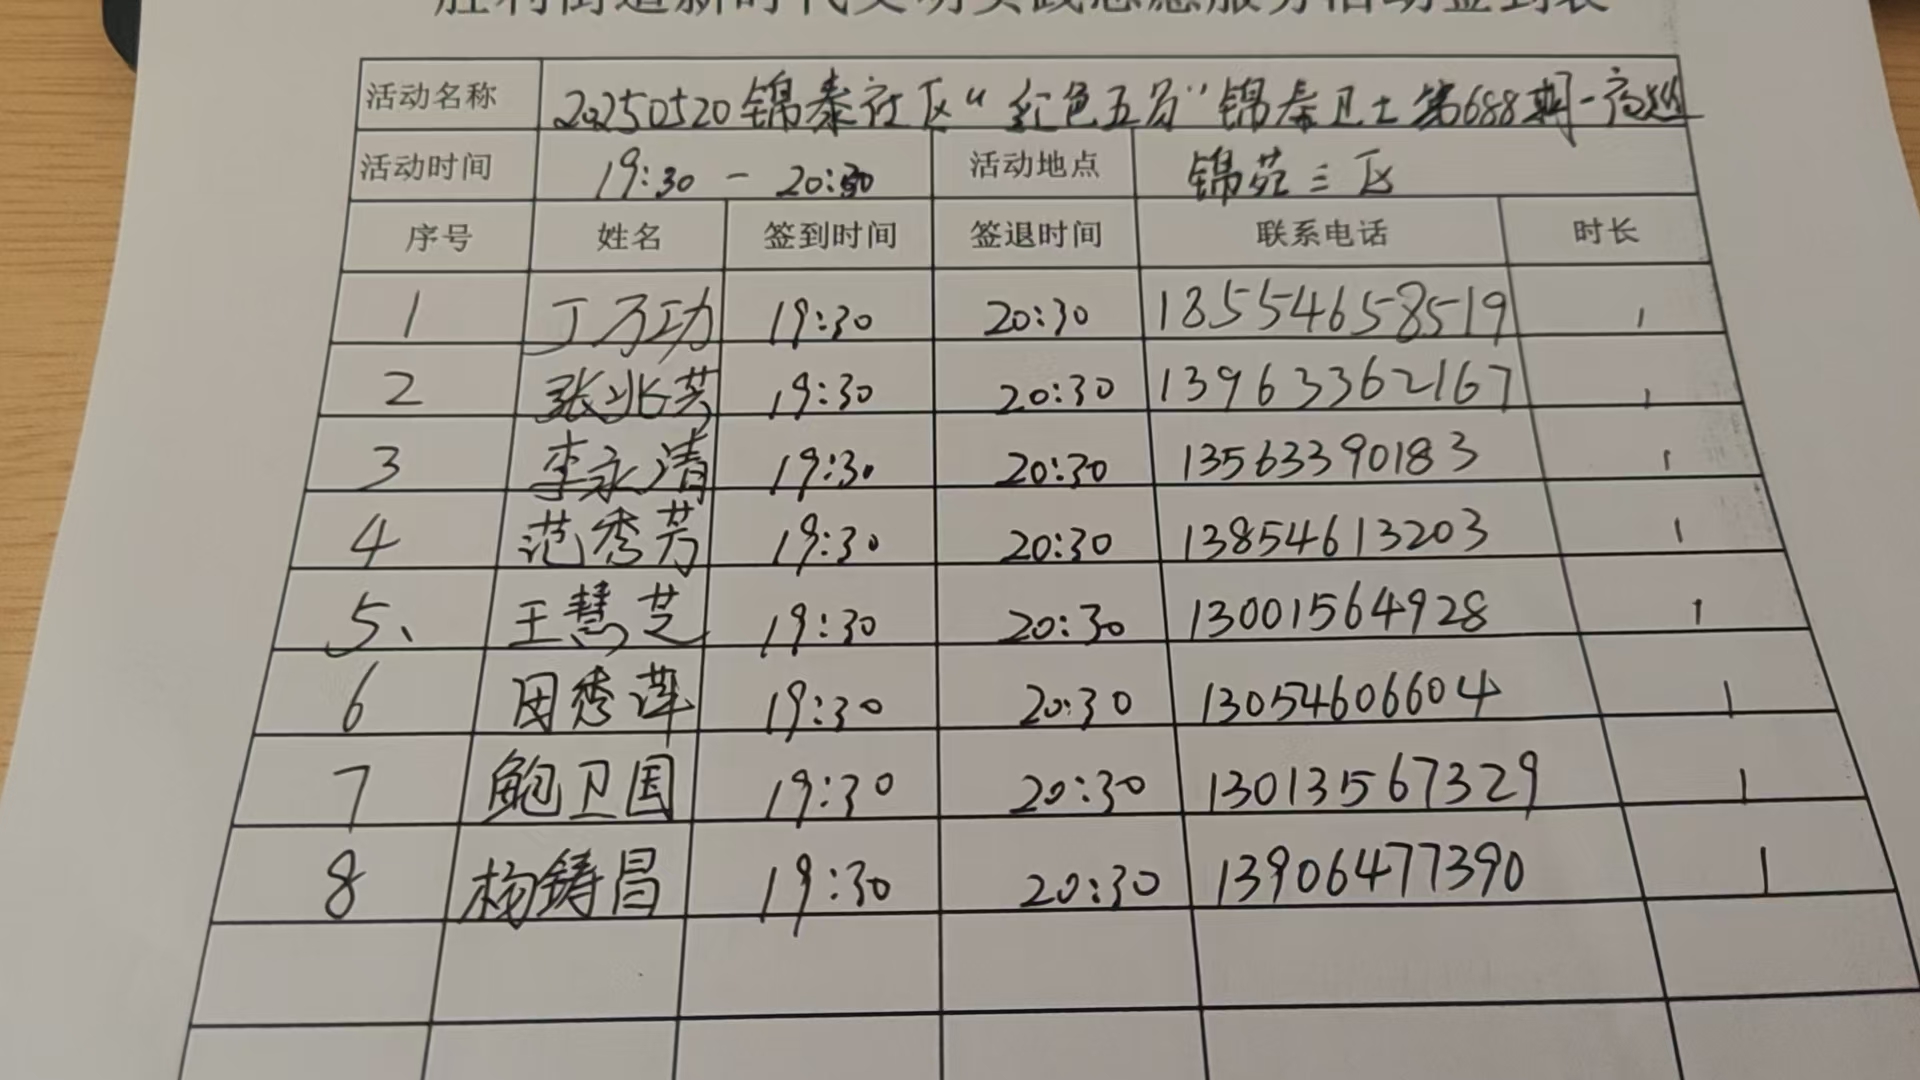 胜利街道新时代文明实践志愿服务活动签到表
活动名称 20250520锦泰社区“红色五员”锦泰卫士第688期-夜巡
活动时间 19:30 - 20:30 活动地点 锦苑三区
序号 姓名 签到时间 签退时间 联系电话 时长
1 丁万功 19:30 20:30 18554658519 1
2 张兆芸 19:30 20:30 13963362167 1
3 李永清 19:30 20:30 13563390183 1
4 范秀芳 19:30 20:30 13854613203 1
5、 王慧芝 19:30 20:30 13001564928 1
6 田秀萍 19:30 20:30 13054606604 1
7 鲍卫国 19:30 20:30 13013567329 1
8 杨铸昌 19:30 20:30 13906477390 1